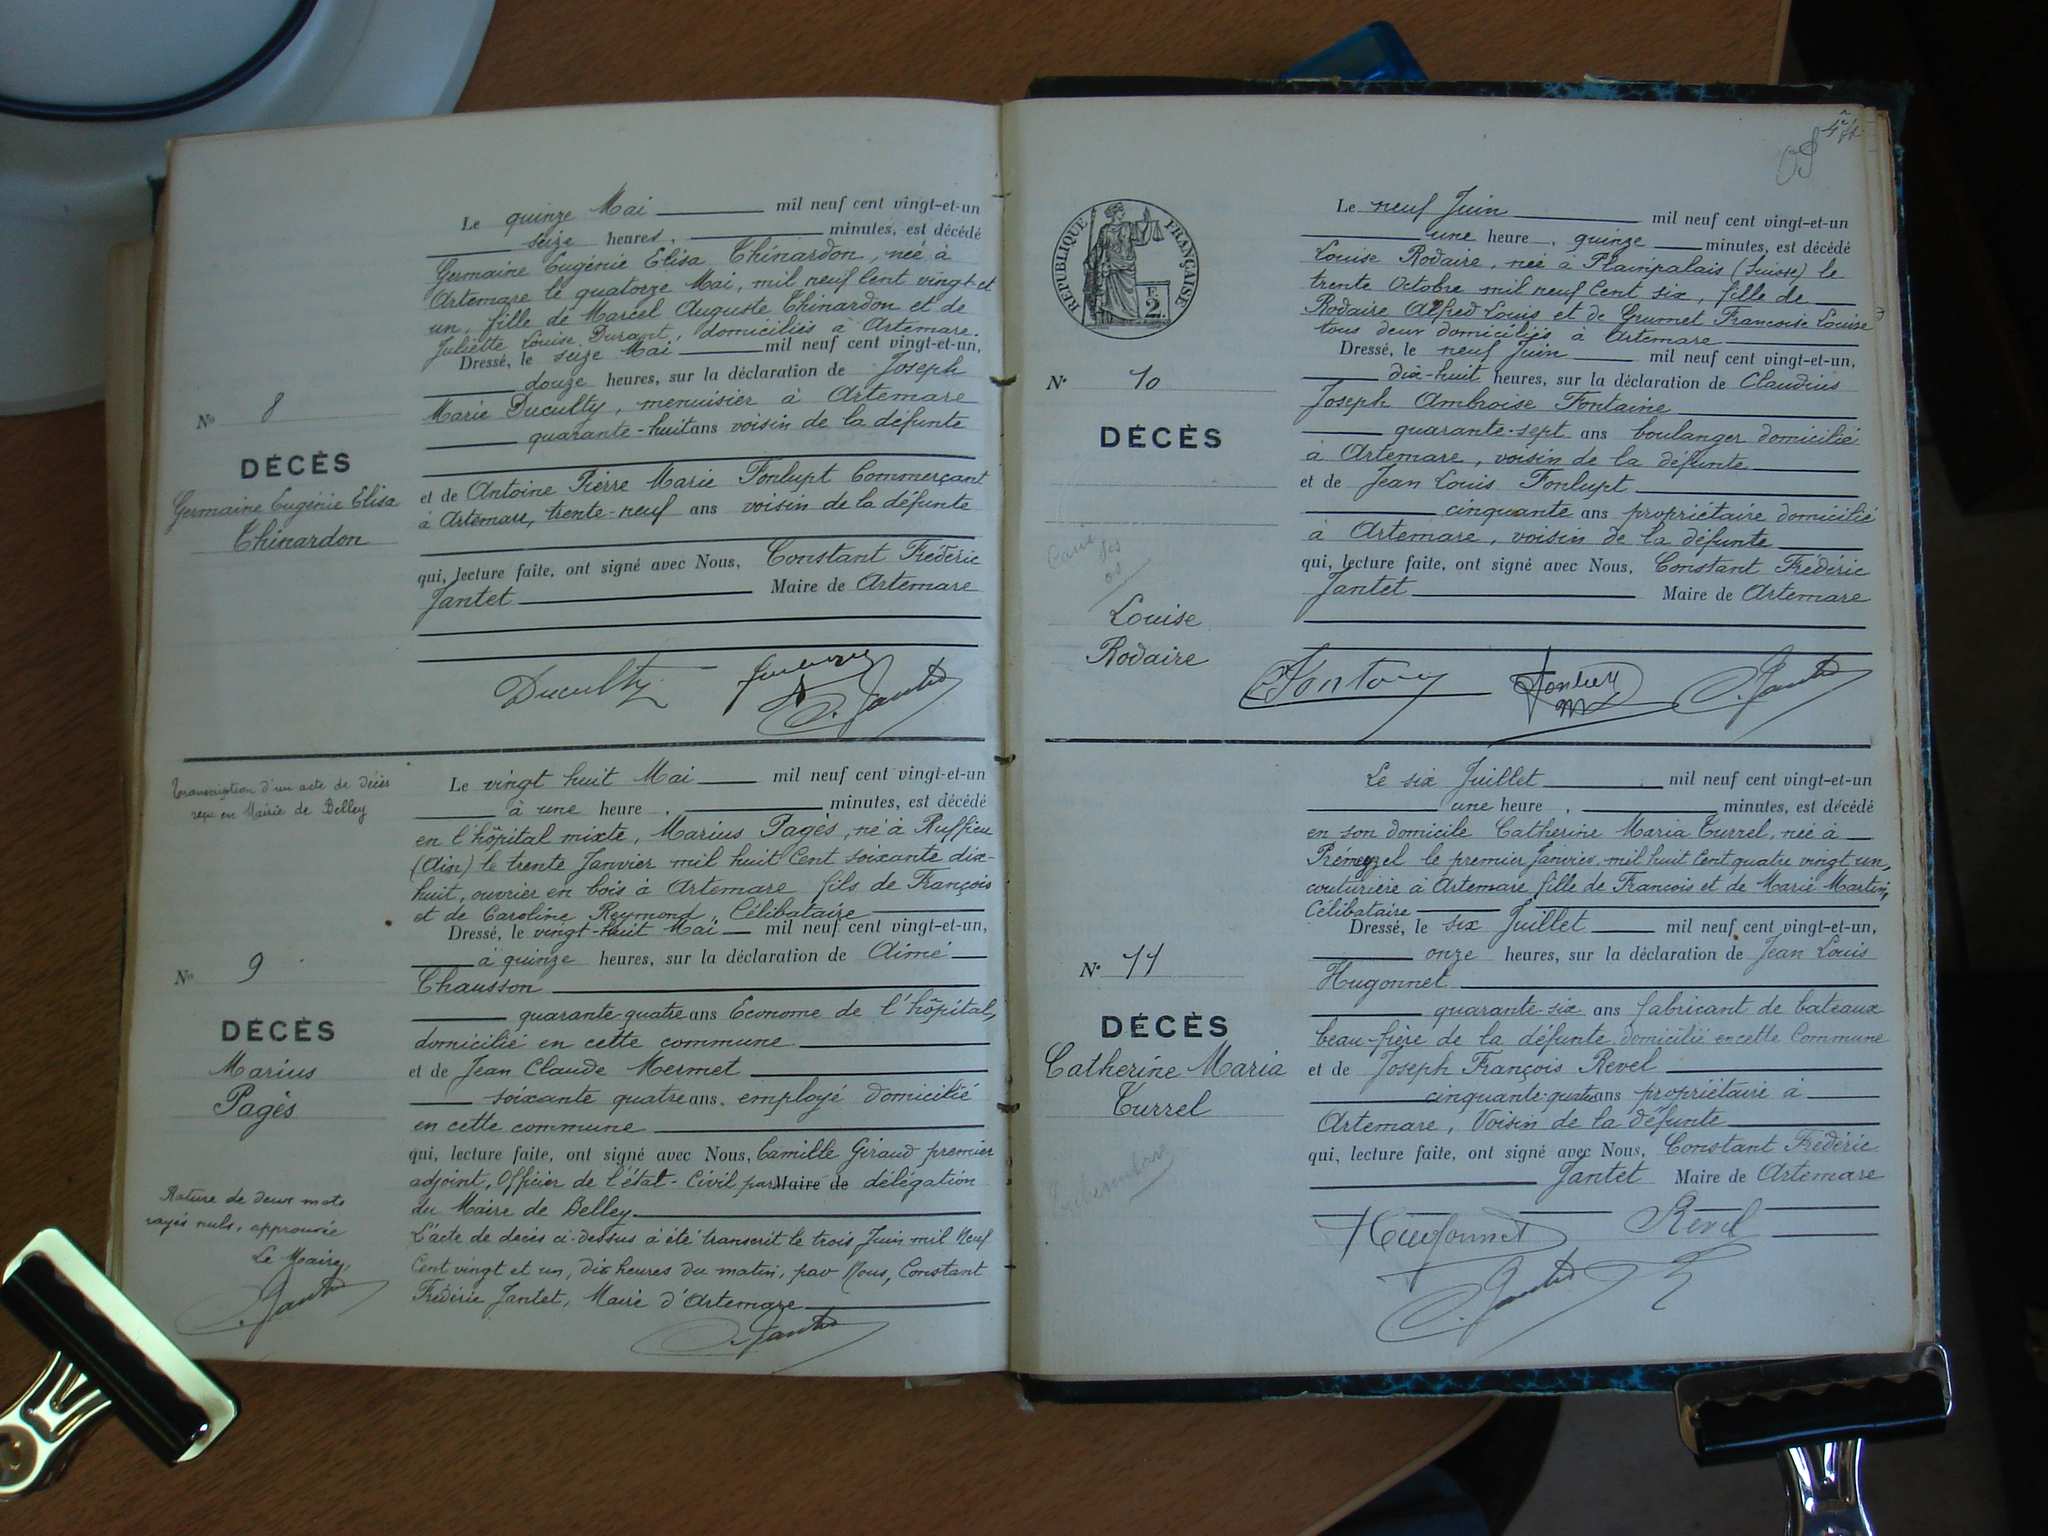 Le quinze Mai mil neuf cent vingt-et-un
seize heures, minutes, est décédé
Germaine Eugénie Elisa Thinardon, née à
Artemare le quatorze Mai, mil neuf Cent vingt et
un, fille de Marcel Auguste Thinardon et de
Juliette Louise Durant, domiciliés à Artemare.
Dressé, le seize Mai mil neuf cent vingt-et-un,
douze heures, sur la déclaration de Joseph
Marie Duculty, menuisier à Artemare
quarante-huit ans voisin de la défunte
et de Antoine Pierre Marie Fonlupt Commerçant
à Artemare, trente-neuf ans voisin de la défunte
qui, lecture faite, ont signé avec Nous, Constant Frédéric
Jantet Maire de Artemare
Duculty C. Jantet
No 8
DÉCÈS
Germaine Eugénie Elisa
Thinardon
Transcription d'un acte de décès
reçu en Mairie de Belley
Le vingt huit Mai mil neuf cent vingt-et-un
à une heure, minutes, est décédé
en l'hôpital mixte, Marius Pagès, né à Ruffieu
(Ain) le trente Janvier mil huit Cent soixante dix-
huit, ouvrier en bois à Artemare fils de François
et de Caroline Reymond, Célibataire
Dressé, le vingt-huit Mai mil neuf cent vingt-et-un,
à quinze heures, sur la déclaration de Aimé
Chausson
quarante-quatre ans Econome de l'hôpital,
domicilié en cette commune
et de Jean Claude Mermet
soixante quatre ans. employé domicilié
en cette commune
qui, lecture faite, ont signé avec Nous, Camille Giraud premier
adjoint, Officier de l'état-Civil par Maire de délégation
du Maire de Belley
L'acte de décès ci-dessus a été transcrit le trois Juin mil Neuf
Cent vingt et un, dix heures du matin, par Nous, Constant
Frédéric Jantet, Maire d'Artemare
C. Jantet
No 9
DÉCÈS
Marius
Pagès
Rature de deux mots
rayés nuls, approuvée
Le Maire,
C. Jantet
RÉPUBLIQUE FRANÇAISE
F.
2.
Le neuf Juin mil neuf cent vingt-et-un
une heure, quinze minutes, est décédé
Louise Rodaire, née à Plainpalais (Suisse) le
trente Octobre mil neuf Cent six, fille de
Rodaire Alfred Louis et de Grumet Francoise Louise
tous deux domiciliés à Artemare
Dressé, le neuf Juin mil neuf cent vingt-et-un,
dix-huit heures, sur la déclaration de Claudius
Joseph Ambroise Fontaine
quarante-sept ans boulanger domicilié
à Artemare, voisin de la défunte
et de Jean Louis Fonlupt
cinquante ans propriétaire domicilié
à Artemare, voisin de la défunte
qui, lecture faite, ont signé avec Nous, Constant Frédéric
Jantet Maire de Artemare
C. Jantet
No 10
DÉCÈS
Louise
Rodaire
Le six Juillet mil neuf cent vingt-et-un
une heure, minutes, est décédé
en son domicile Catherine Maria Turrel, née à
Prémeyzel le premier Janvier, mil huit Cent quatre vingt un,
couturière à Artemare, fille de Francois et de Marie Martin,
Célibataire
Dressé, le six Juillet mil neuf cent vingt-et-un,
onze heures, sur la déclaration de Jean Louis
Hugonnet
quarante-six ans fabricant de bateaux
beau-frère de la défunte domicilié en cette Commune
et de Joseph François Revel
cinquante-quatre ans propriétaire à
Artemare, Voisin de la défunte
qui, lecture faite, ont signé avec Nous, Constant Frédéric
Jantet Maire de Artemare
Hugonnet Revel
C. Jantet
No 11
DÉCÈS
Catherine Maria
Turrel